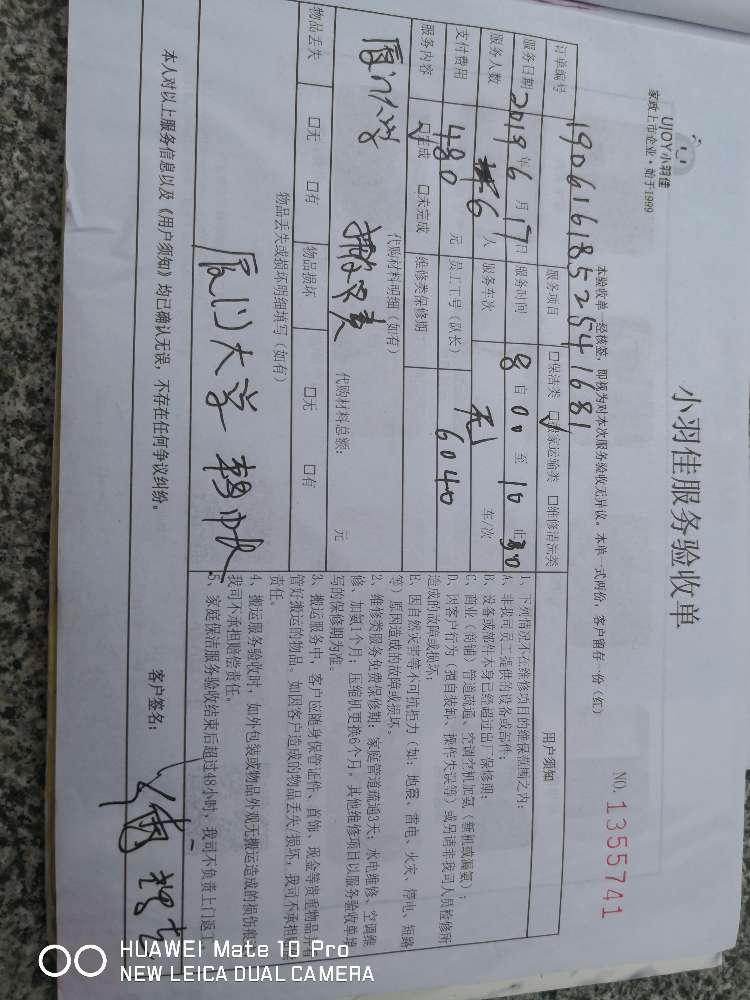 UJOY小羽佳
家政上市企业·始于1999
小羽佳服务验收单
NO. 1355741
本验收单一经核签,即视为对本次服务验收无异议。本单一式两份,客户留存一份(红)
订单编号 1906161852541681
服务项目 □保洁类 □搬家运输类 □维修清洗类
服务日期 2019年6月17日 服务时间 8自00至10止30
服务人数 6人 服务车次 无 车/次
支付费用 480元 员工工号(队长) 6040
服务内容 □完成 □未完成 维修类保修期
代购材料明细(如有)
厦门大学
搬家费
代购材料总额: 元
物品丢失 □无 □有 物品损坏 □无 □有
物品丢失或损坏明细填写(如有)
厦门大学
用户须知
1、下列情况不在维修项目的维保范围之内:
A、非我司员工提供的设备或部件;
B、设备或部件本身已经超过出厂保修期;
C、商业(商铺)管道疏通、空调空机加氨(新机或漏氨);
D、因客户行为(擅自装卸、操作失误等)或另请非我司人员检修所
造成的故障或损坏;
E、因自然灾害等不可抗拒力(如:地震、雷电、火灾、停电、短路
等)原因造成的故障或损坏。
2、维修类服务免费保修期:家庭管道疏通3天;水电维修、空调维
修、加氨1个月;压缩机更换6个月。其他维修项目以服务验收单填
写的保修期为准。
3、搬运服务中,客户应随身保管证件、首饰、现金等贵重物品,看
管好搬运的物品。如因客户造成的物品丢失/损坏,我司不承担
责任。
4、搬运服务验收时,如外包装或物品外观无搬运造成的损伤痕
我司不承担赔偿责任。
5、家庭保洁服务验收结束后超过48小时,我司不负责上门返
本人对以上服务信息以及《用户须知》均已确认无误,不存在任何争议纠纷。
客户签名:
HUAWEI Mate 10 Pro
NEW LEICA DUAL CAMERA